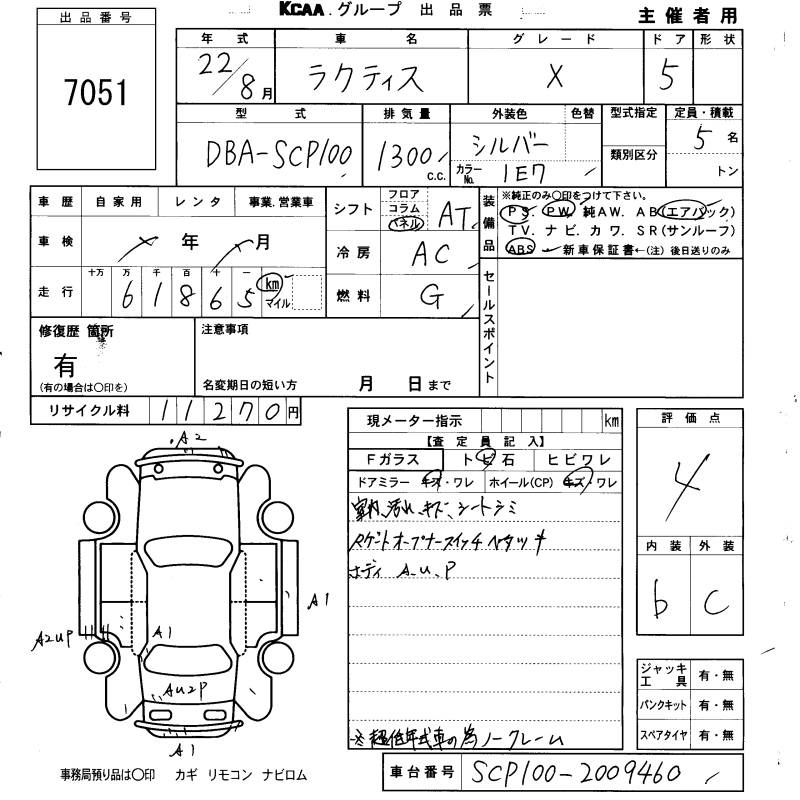 KCAA グループ 出品票
主催者用
出品番号
7051
年式 車名 グレード ドア 形状
22/8月 ラクティス X 5
型式 排気量 外装色 色替 型式指定 定員・積載
DBA-SCP100 1300 c.c. シルバー 類別区分 5 名
カラーNo. 1E7 トン
車歴 自家用 レンタ 事業.営業車
シフト フロア コラム パネル AT
装備品 ※純正のみ○印をつけて下さい。
PS. PW. 純AW. AB(エアバック)
TV. ナビ. カワ. SR(サンルーフ)
ABS 新車保証書←(注)後日送りのみ
車検 年 月
冷房 AC
走行 十万 万 千 百 十 一
6 1 8 6 5 km マイル
燃料 G
セールスポイント
修復歴 箇所
有
(有の場合は○印を)
注意事項
名変期日の短い方 月 日まで
リサイクル料 11270円
現メーター指示 km
【査定員記入】
Fガラス トビ石 ヒビワレ
ドアミラー キズ・ワレ ホイール(CP) キズ・ワレ
室内、汚れ、キズ、シートシミ
ボディ A.U.P
※超低年式車の為ノークレーム
評価点
4
内装 外装
b C
A2
A1
A2UP
A1
AU2P
A1
ジャッキ工具 有・無
パンクキット 有・無
スペアタイヤ 有・無
車台番号 SCP100-2009460
事務局預り品は○印 カギ リモコン ナビロム